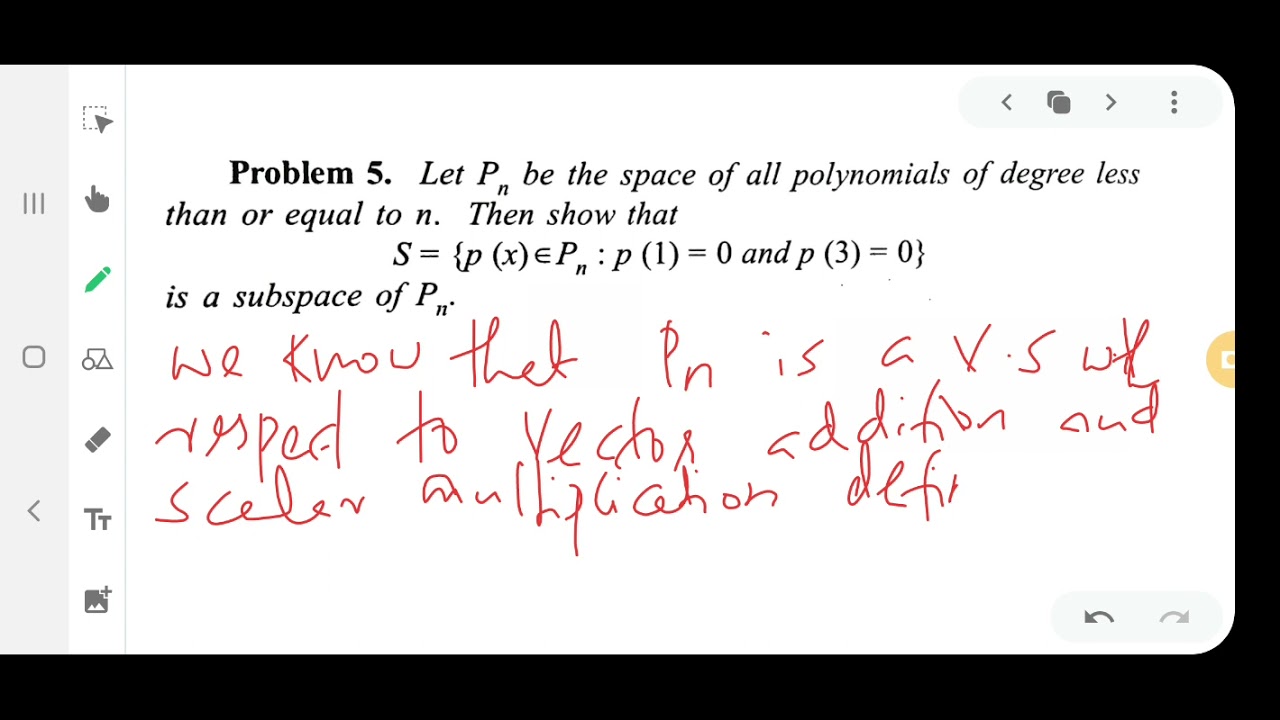 Problem 5. Let Pn be the space of all polynomials of degree less
than or equal to n. Then show that
S = {p (x) ∈ Pn : p (1) = 0 and p (3) = 0}
is a subspace of Pn.
we know that Pn is a V.S
respect to vector addition and
scaler multiplication defi
TT